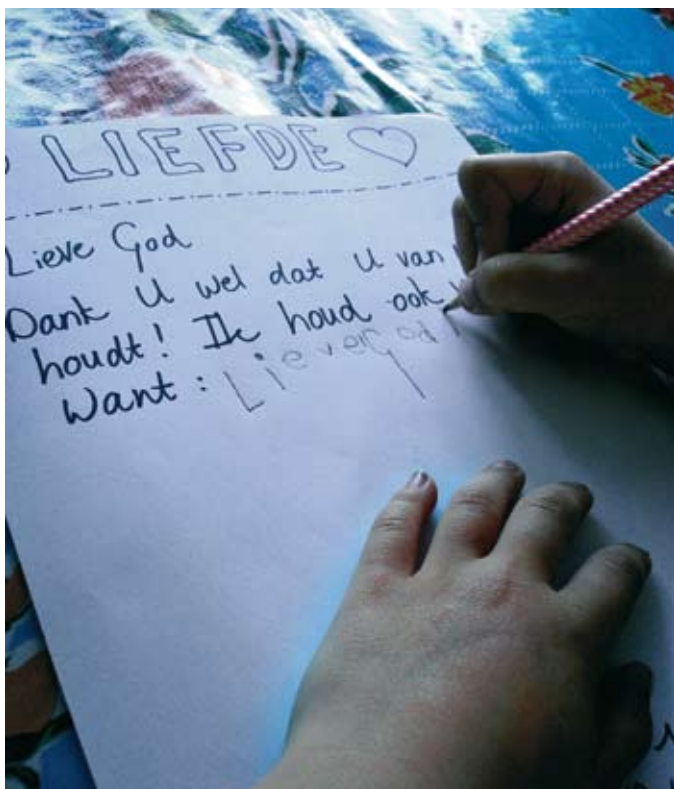 LIEFDE
Lieve God
Dank U wel dat U van
houdt! Ik houd ook
Want: Lieve God